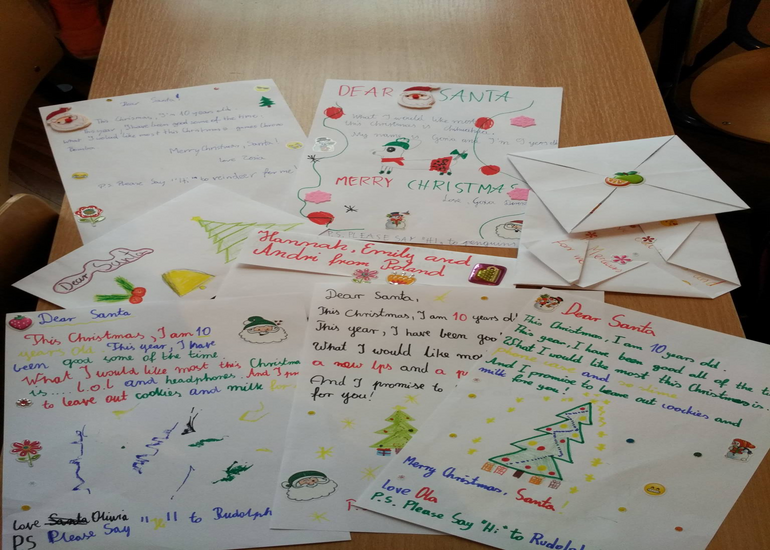 Dear Santa!
This Christmas, I'm 10 years old.
What I would like most this Christmas is
Merry Christmas, Santa!
love
PS. Please Say "Hi" to reindeer for me!
DEAR SANTA
What I would like most
this Christmas is
My name is and I'm years
MERRY CHRISTMAS
Love,
PS. PLEASE SAY "Hi" to penguins
Dear Santa
Hannah, Emily and
Andri from Poland
For
Dear Santa
This Christmas, I am 10
years old. This year, I have
been good some of the time.
What I would like most this Christmas
is.... L.O.L and headphones. And I pr
to leave out cookies and milk for
Love Santa Oliwia
PS Please Say "Hi" to Rudolph
Dear Santa,
This Christmas, I am 10 years ol
This year, I have been goo
What I would like mo
a new lps and a p
And I promise to
for you!
Dear Santa
This Christmas, I am 10 years old.
This year, I have been good all of the ti
What I would like most this Christmas is..
and
And I promise to leave out coockies and
milk fore you!
Merry Christmas, Santa!
love Ola
P.S. Please Say "Hi" to Rudol